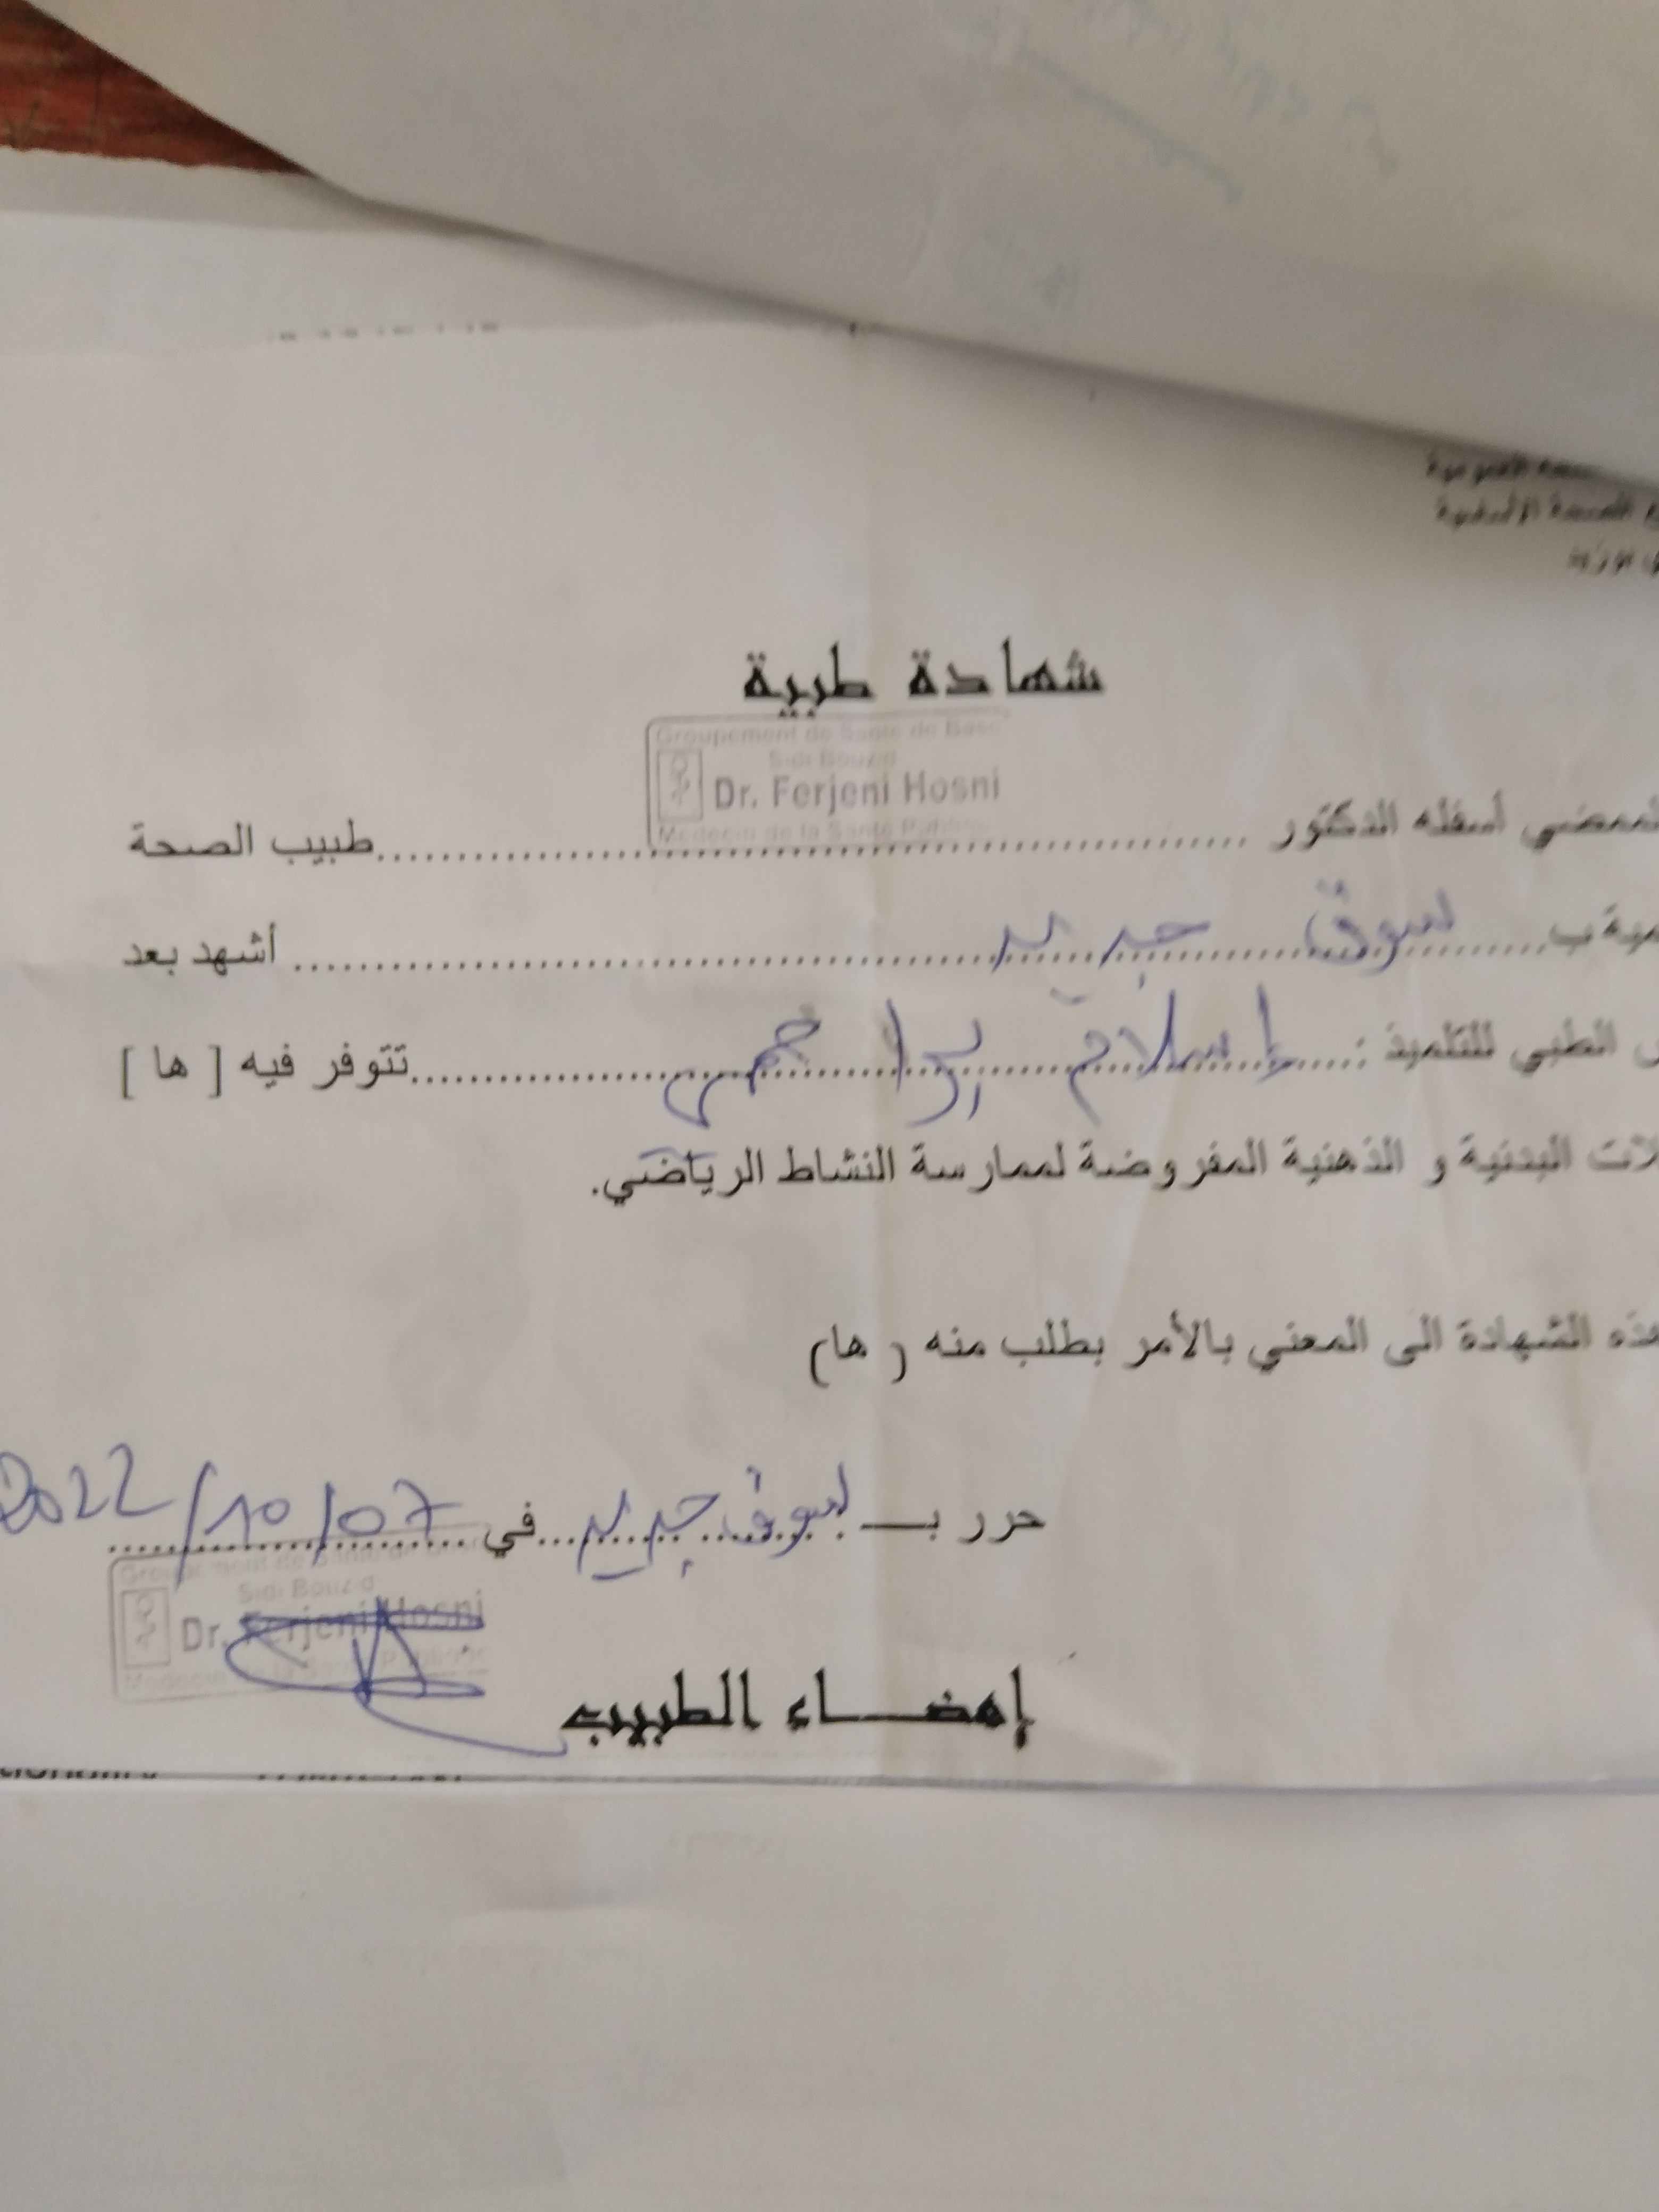 الصحة الأساسية
شهادة طبية
Groupement de Santé de Base
Sidi Bouzid
Dr. Ferjeni Hosni
Medecin de la Santé Publique
أسفله الدكتور ........ طبيب الصحة
سوق جديد ........ أشهد بعد
الطبي للتلميذ : إسلام براهمي ........ تتوفر فيه [ ها ]
البدنية و الذهنية المفروضة لممارسة النشاط الرياضي.
هذه الشهادة الى المعني بالأمر بطلب منه ( ها)
حرر بـ سوق جديد في 2022/10/07
Groupement de Santé de Base
Sidi Bouzid
Dr. Ferjeni Hosni
Medecin de la Santé Publique
إمضاء الطبيب